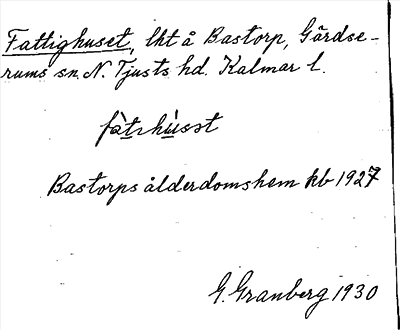 Fattighuset, lht å Bastorp, Gärdse-
rums sn. N. Tjusts hd. Kalmar l.
Bastorps ålderdomshem kb 1927
G. Granberg 1930